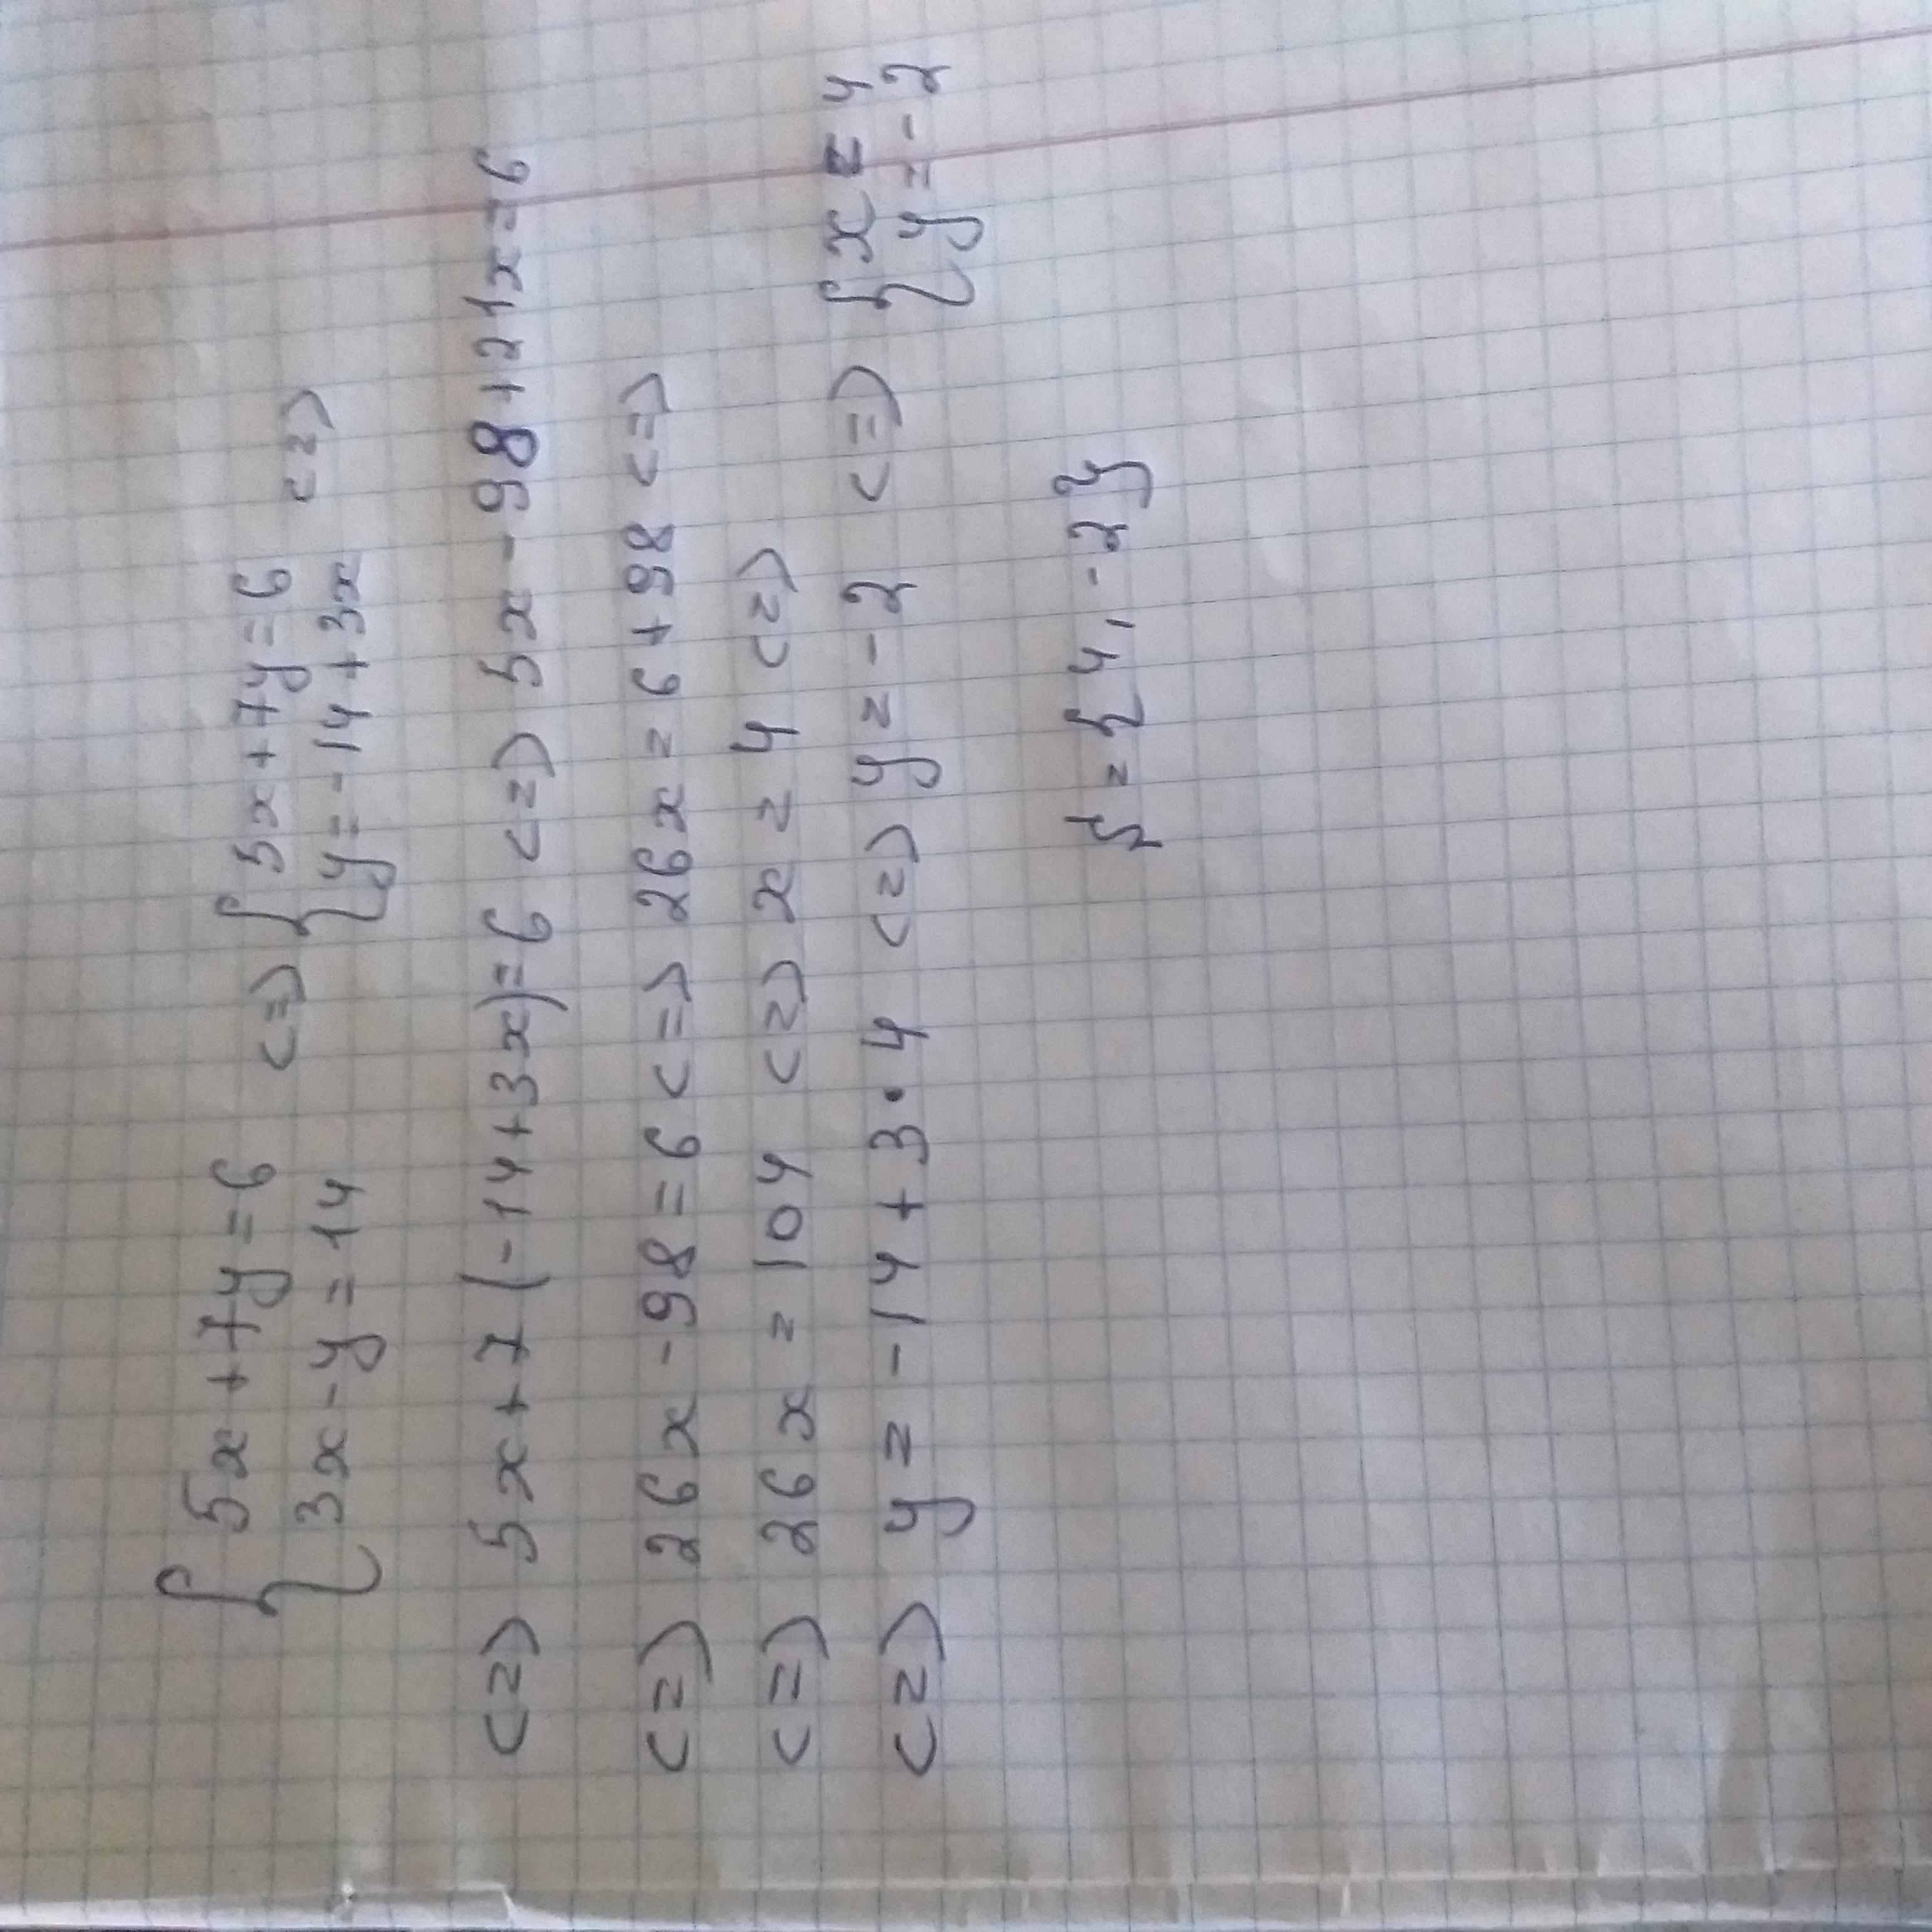 { 5x + 7y = 6 <=> { 5x + 7y = 6 <=>
3x - y = 14 y = -14 + 3x
<=> 5x + 7 (-14 + 3x) = 6 <=> 5x - 98 + 21x = 6
<=> 26x - 98 = 6 <=> 26x = 6 + 98 <=>
<=> 26x = 104 <=> x = 4 <=>
<=> y = -14 + 3 · 4 <=> y = -2 <=> { x = 4
y = -2
S = {4, -2}